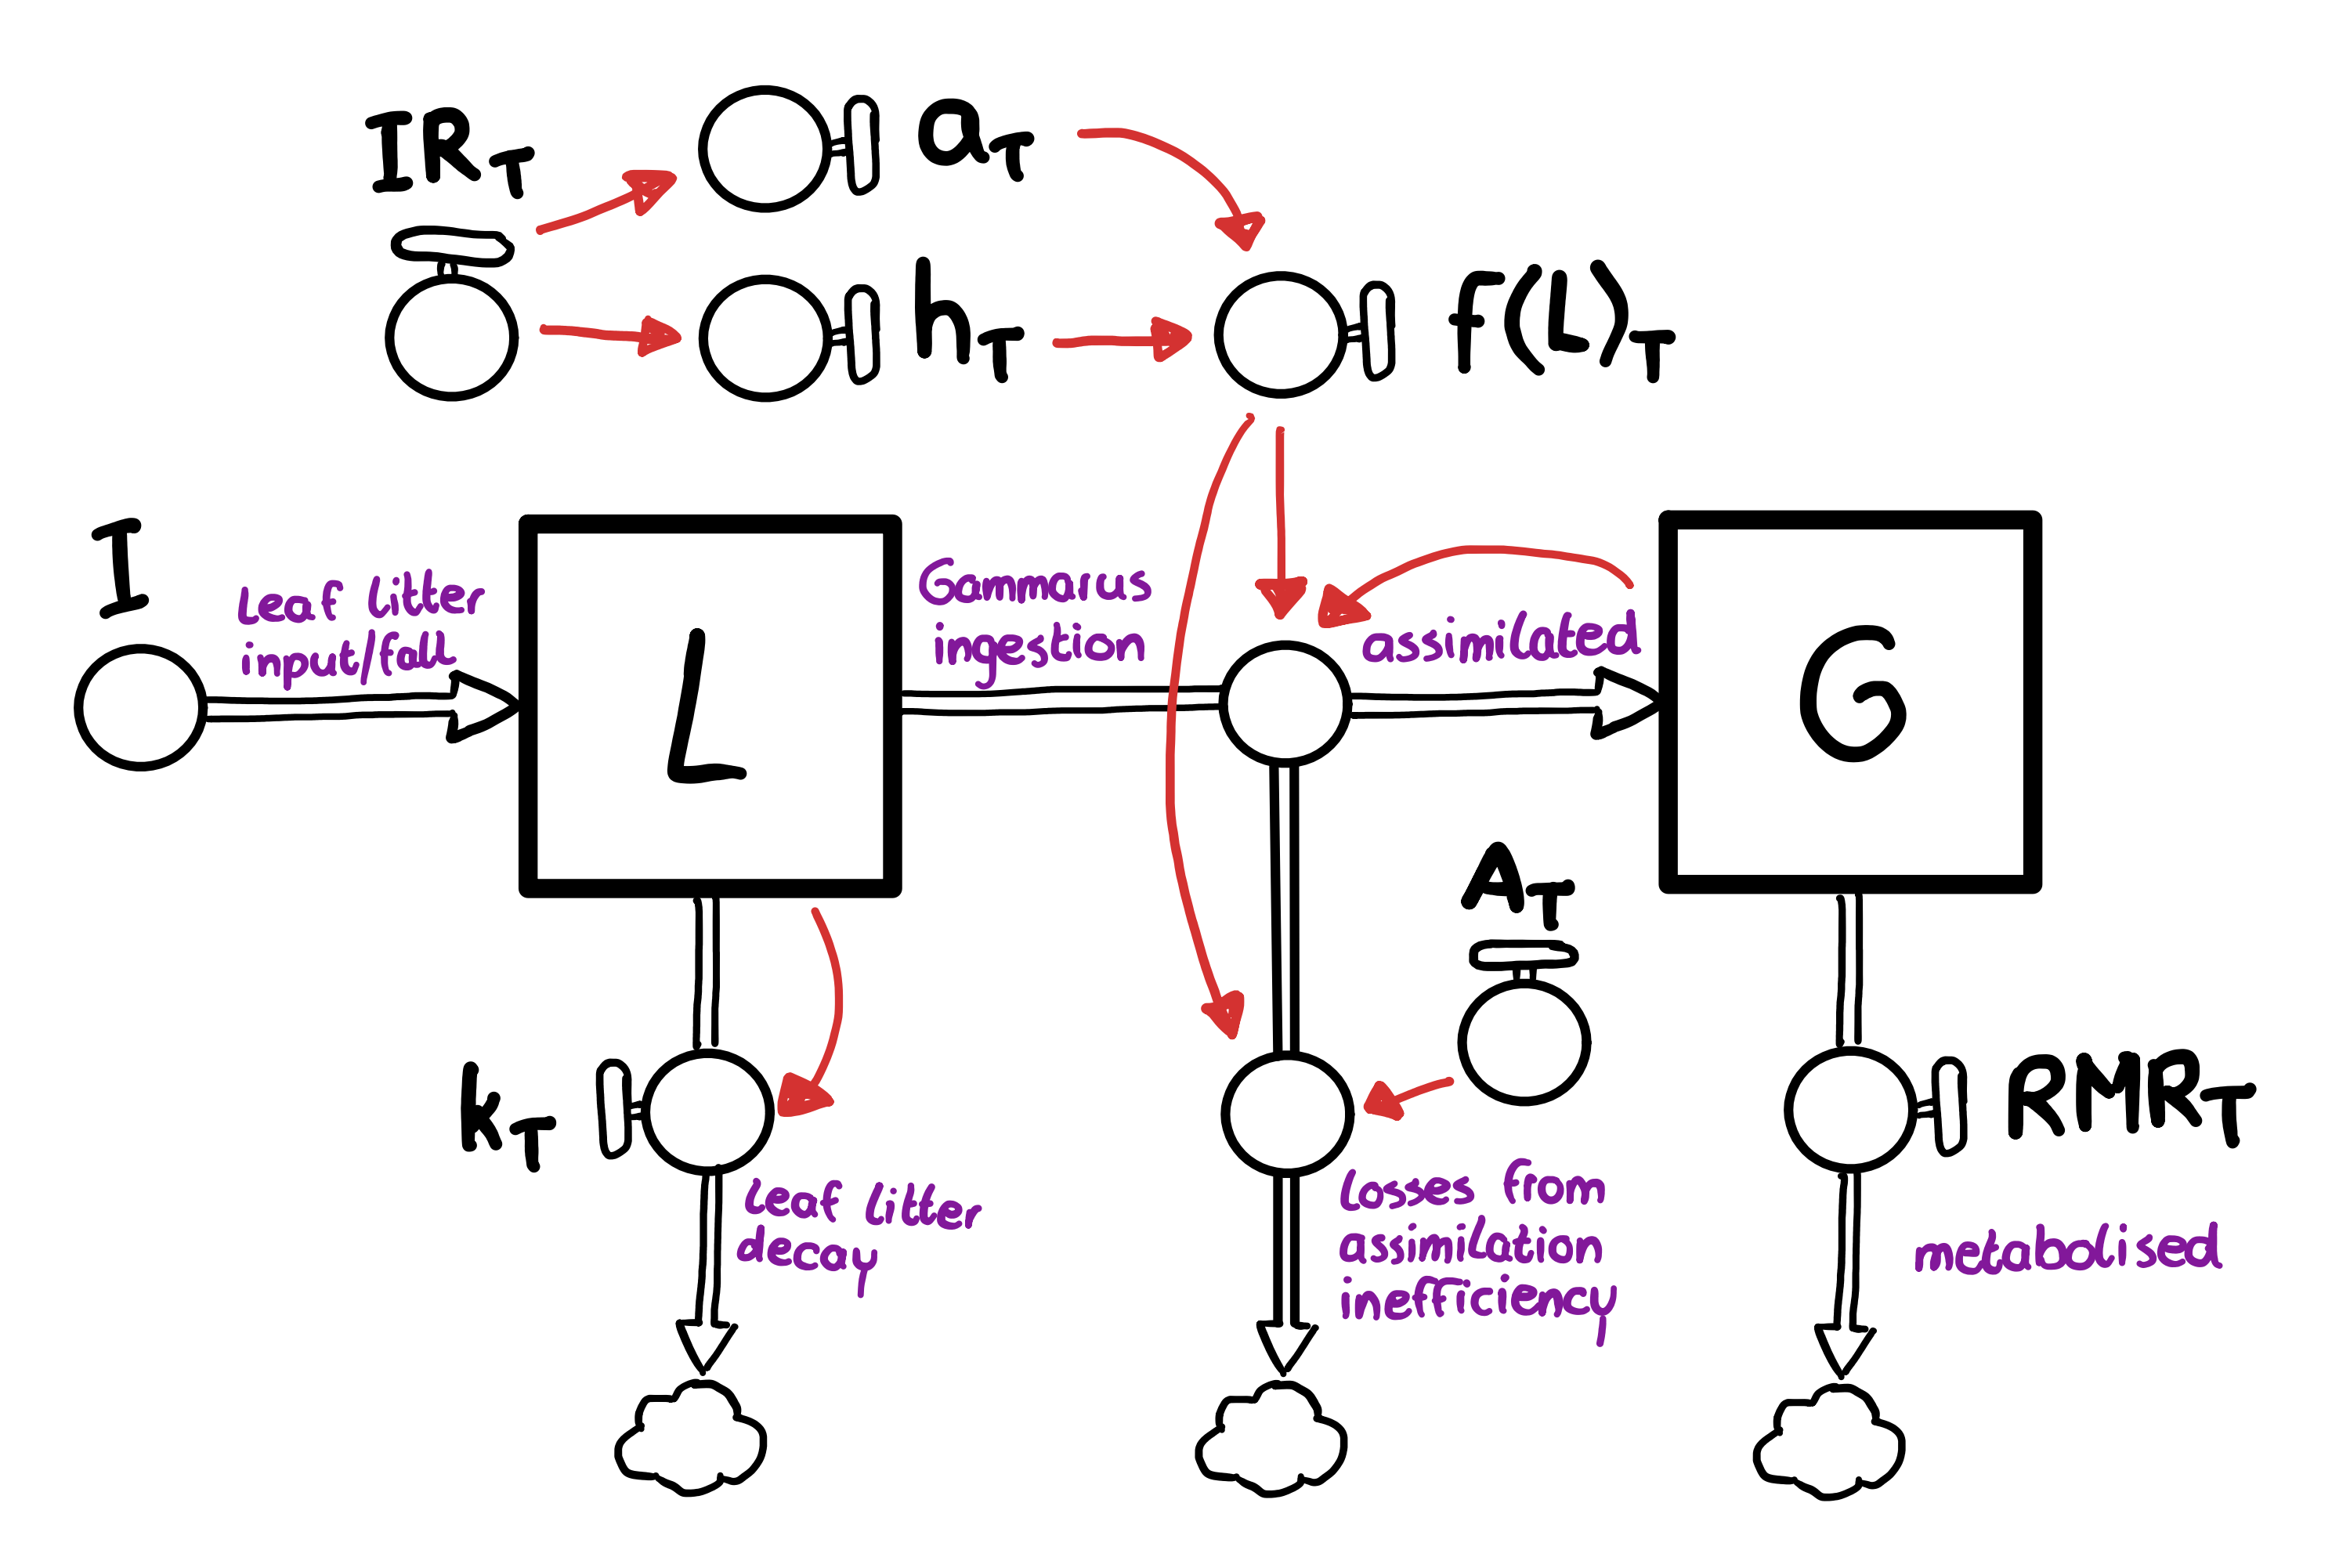 IR_T
a_T
h_T
f(L)_T
I
Leaf litter
input/fall
L
Gammarus
ingestion
assimilated
G
A_T
k_T
Leaf litter
decay
losses from
assimilation
inefficiency
RMR_T
metabolised